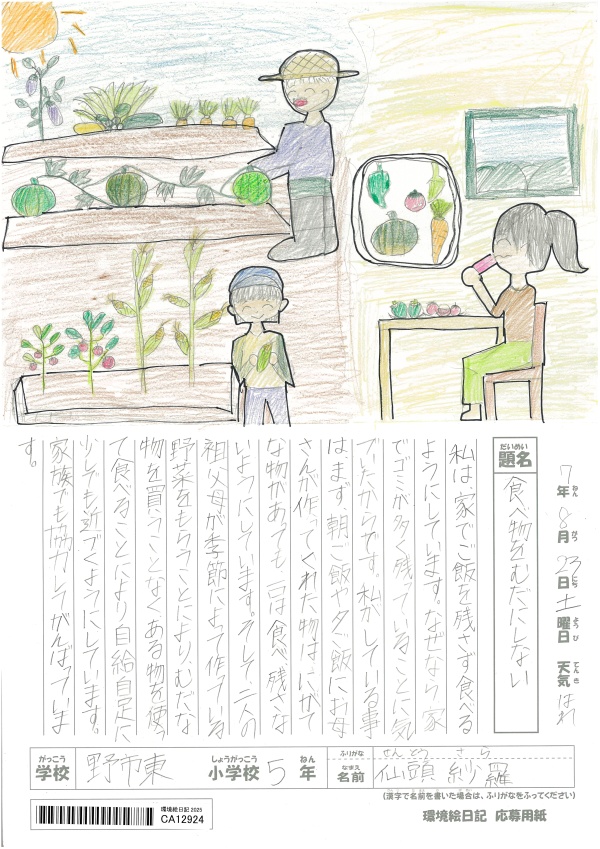 7年 8月 23日 土曜日 天気 はれ
ねん がつ にち ようび てんき
だいめい
題名 食べ物をむだにしない
私は家でご飯を残さず食べる
ようにしています。なぜなら家
でゴミが多く残っていることに気
づいたからです。私がしている事
はまず、朝ご飯や夕ご飯にお母
さんが作ってくれた物はにがて
な物があっても一口は食べ残さな
いようにしています。そして二人の
祖父母が季節によって作っている
野菜をもらうことにより、むだな
物を買うことなくある物を使っ
て食べることにより自給自足に
少しでも近づくようにしています。
家族でも協力してがんばっていま
す。
がっこう しょうがっこう ねん
学校 野市東 小学校 5 年
ふりがな せんとう さら
なまえ
名前 仙頭 紗羅
(漢字で名前を書いた場合は、ふりがなをふってください)
環境絵日記 2025
CA12924
環境絵日記 応募用紙